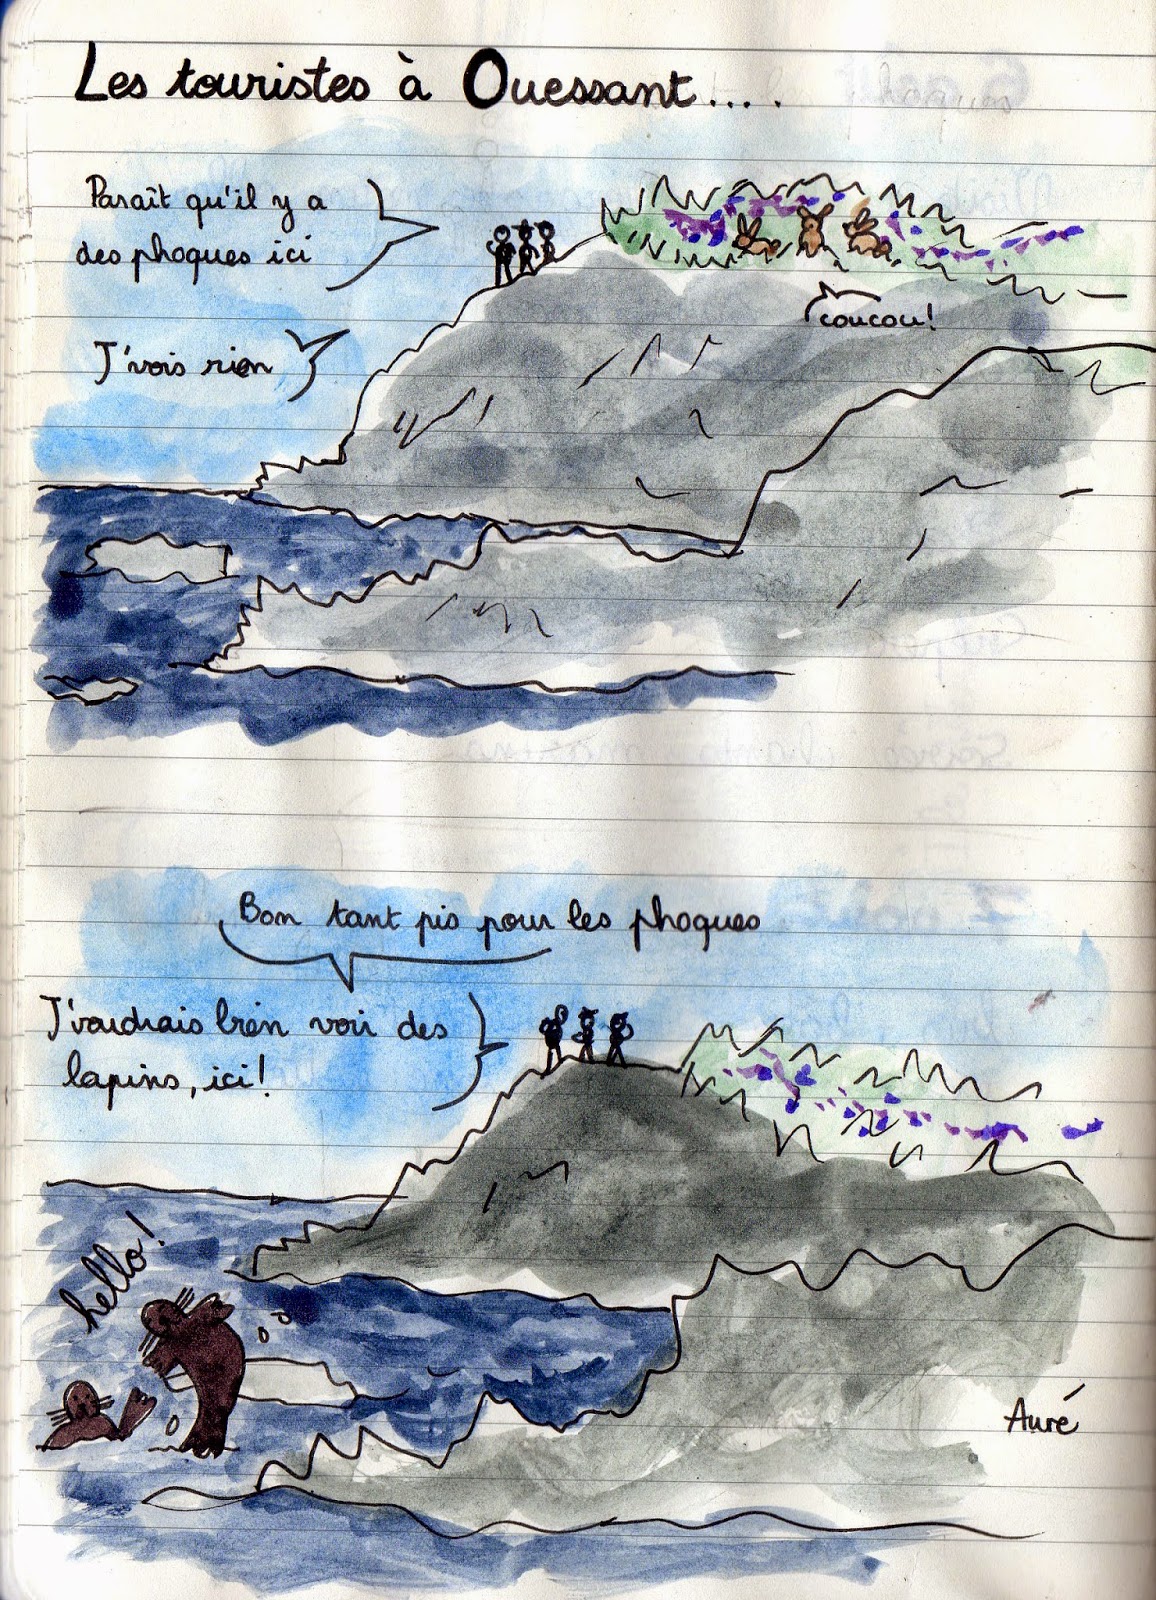 Les touristes à Ouessant....
Paraît qu'il y a
des phoques ici
coucou!
J'vois rien
Bon tant pis pour les phoques
J'voudrais bien voir des
lapins, ici!
hello!
Auré